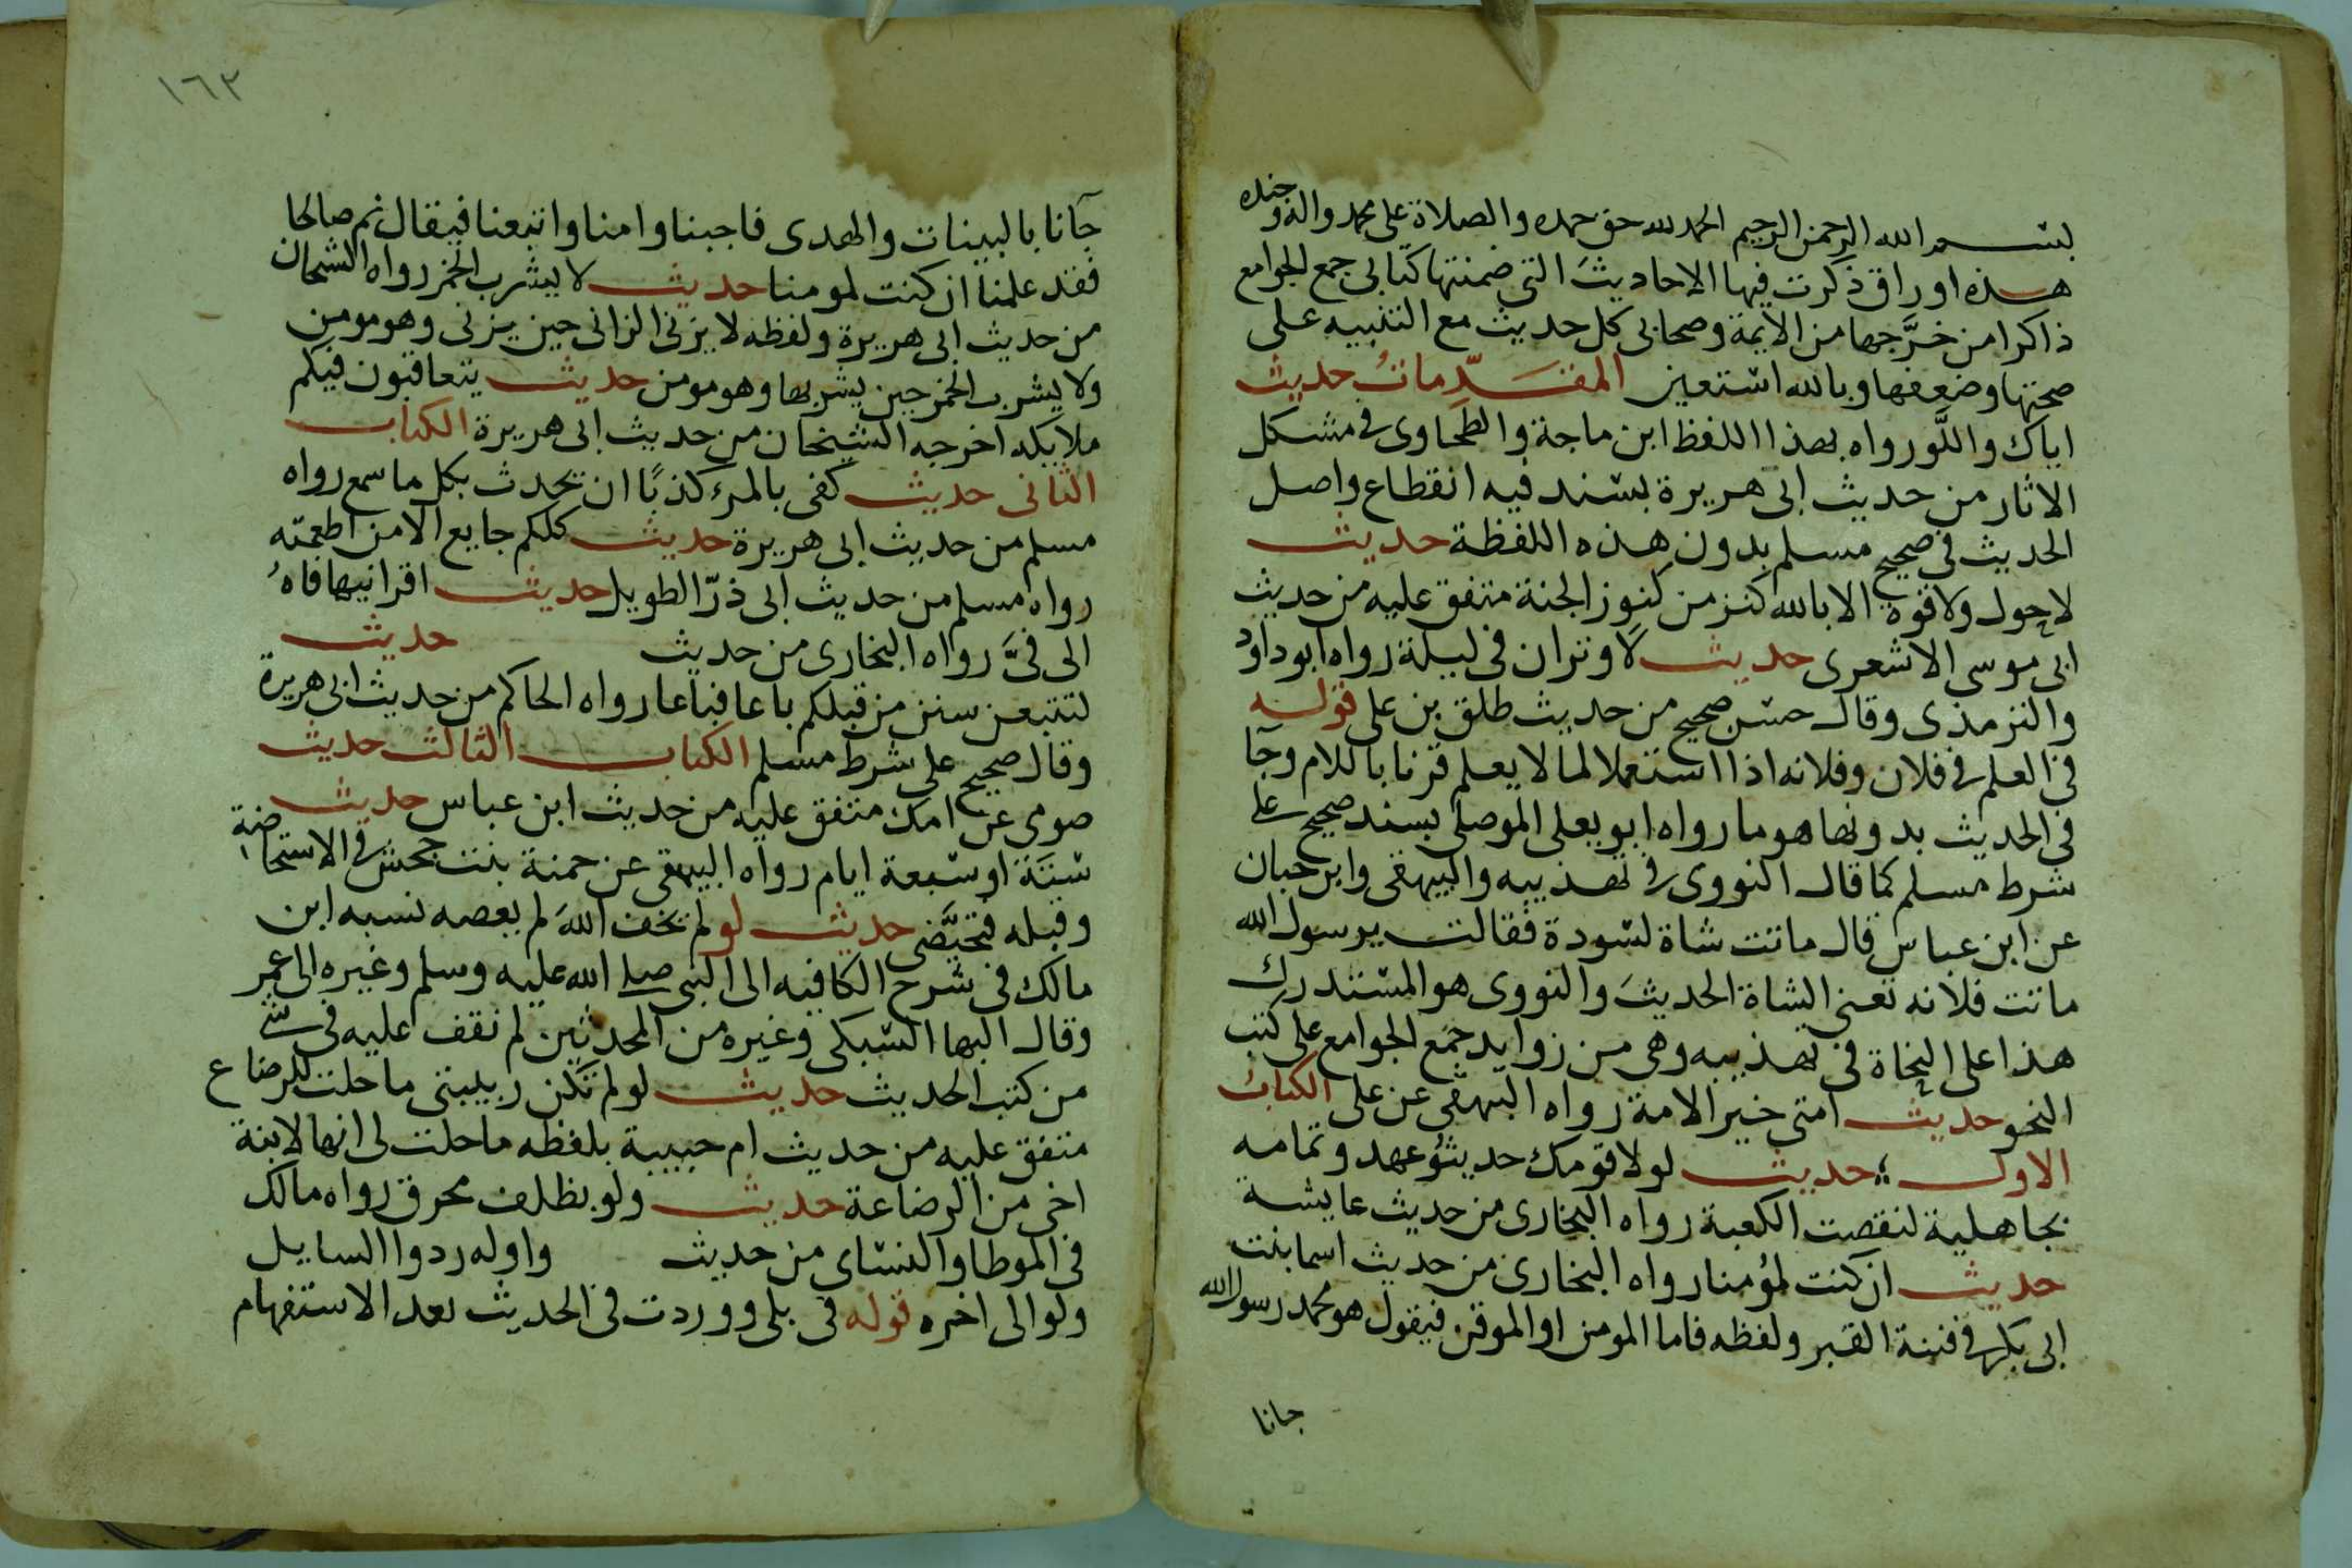 بسم الله الرحمن الرحيم الحمد لله حق حمده والصلاة على محمد واله وجنده
هذه اوراق ذكرت فيها الاحاديث التي ضمنتها كتابي جمع الجوامع
ذاكرا من خرَّجها من الايمة وصحابي كل حديث مع التنبيه على
صحتها وضعفها وبالله استعين المقدّماتُ حديث
اياك واللَّو رواه بهذا اللفظ ابن ماجة والطحاوى في مشكل
الاثار من حديث ابى هريرة بسند فيه انقطاع واصل
الحديث في صحيح مسلم بدون هذه اللفظة حديث
لا حول ولا قوة الا بالله كنز من كنوز الجنة متفق عليه من حديث
ابى موسى الاشعرى حديث لا وتران في ليلة رواه ابو داود
والترمذى وقال حسن صحيح من حديث طلق بن على قوله
في العلم في فلان وفلانه اذا استعملا لما لا يعلم قرنا باللام وجآ
في الحديث بدونها هو ما رواه ابو يعلى الموصلى بسند صحيح على
شرط مسلم كما قال النووى في تهذيبه والبيهقى وابن حبان
عن ابن عباس قال ماتت شاة لسودة فقالت يرسول الله
ماتت فلانه تعنى الشاة الحديث والنووى هو المستدرك
هذا على النحاة في تهذيبه وهى من زوايد جمع الجوامع على كتب
النحو حديث امتى خير الامة رواه البيهقى عن على الكتابُ
الاول حديث لولا قومك حديثُو عهد وتمامه
بجاهلية لنقضت الكعبة رواه البخارى من حديث عايشة
حديث ان كنت لمؤمنا رواه البخارى من حديث اسما بنت
ابى بكر في فتنة القبر ولفظه فاما المومن او الموقن فيقول هو محمد رسول الله
جانا
١٦٣
جآنا بالبينات والهدى فاجبنا وامنا واتبعنا فيقال نم صالحا
فقد علمنا ان كنت لمومنا حديث لا يشرب الخمر رواه الشيخان
من حديث ابى هريرة ولفظه لا يزنى الزانى حين يزنى وهو مومن
ولا يشرب الخمر حين يشربها وهو مومن حديث يتعاقبون فيكم
ملايكة اخرجه الشيخان من حديث ابى هريرة الكتاب
الثانى حديث كفى بالمرء كذبًا ان يحدث بكل ما سمع رواه
مسلم من حديث ابى هريرة حديث كلكم جايع الا من اطعمته
رواه مسلم من حديث ابى ذرّ الطويل حديث اقرانيها فاهُ
الى فيَّ رواه البخارى من حديث حديث
لتتبعن سنن من قبلكم باعا فباعا رواه الحاكم من حديث ابى هريرة
وقال صحيح على شرط مسلم الكتاب الثالث حديث
صومى عن امك متفق عليه من حديث ابن عباس حديث
ستة او سبعة ايام رواه البيهقى عن حمنة بنت جحش في الاستحاضة
وقبله فتحيَّضى حديث لو لم يخف اللهَ لم يعصه نسبه ابن
مالك في شرح الكافيه الى النبى صلى الله عليه وسلم وغيره الى عمر
وقال البها السبكى وغيره من المحدثين لم نقف عليه في شي
من كتب الحديث حديث لو لم تكن ربيبتى ما حلت للرضاع
متفق عليه من حديث ام حبيبة بلفظه ما حلت لى انها لابنة
اخى من الرضاعة حديث ولو بظلف محرق رواه مالك
في الموطا والنساى من حديث واوله ردوا السايل
ولو الى اخره قوله في بلى ووردت في الحديث بعد الاستفهام